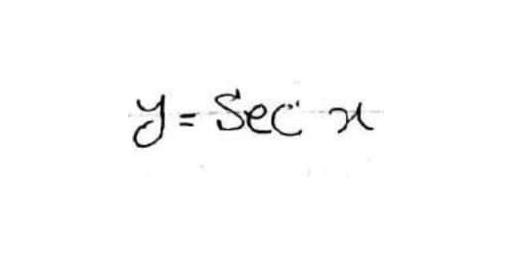 y = Sec x